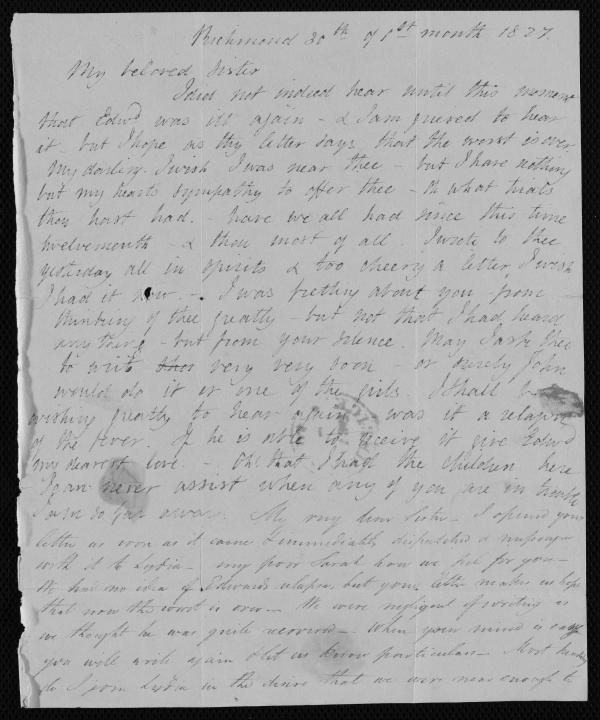 Richmond 30th of 1st month 1827.
My beloved Sister
I did not indeed hear until this moment
that Edwd was ill again - & I am grieved to hear
it - but I hope as thy letter says, that the worst is over
My darling I wish I was near thee - but I have nothing
but my hearts sympathy to offer thee - Oh what trials
thou hast had. - have we all had since this time
twelvemonth - & thou most of all. I wrote to thee
yesterday all in spirits & too cheery a letter, I wish
I had it now. - I was fretting about you from
thinking of thee greatly - but not that I had heard
any thing - but from your silence. May I ask thee
to write very very soon - or surely John
would do it or one of the girls. I shall be
wishing greatly to hear again - was it a relapse
of the fever. If he is able to receive it give Edwd
my dearest love. - Oh! that I had the children here
I can never assist when any of you are in trouble
I am so far away. My very dear Sister - I opened your
letter as soon as it came & immediately dispatched a messenger
with it to Lydia - my poor Sarah how we feel for you -
We had no idea of Edwards relapse, but your letter makes us hope
that now the worst is over - We were negligent of writing as
we thought he was quite recovered - When your mind is easy
you will write again & let us know particulars - Most
do I join Lydia in the desire that we were near enough to